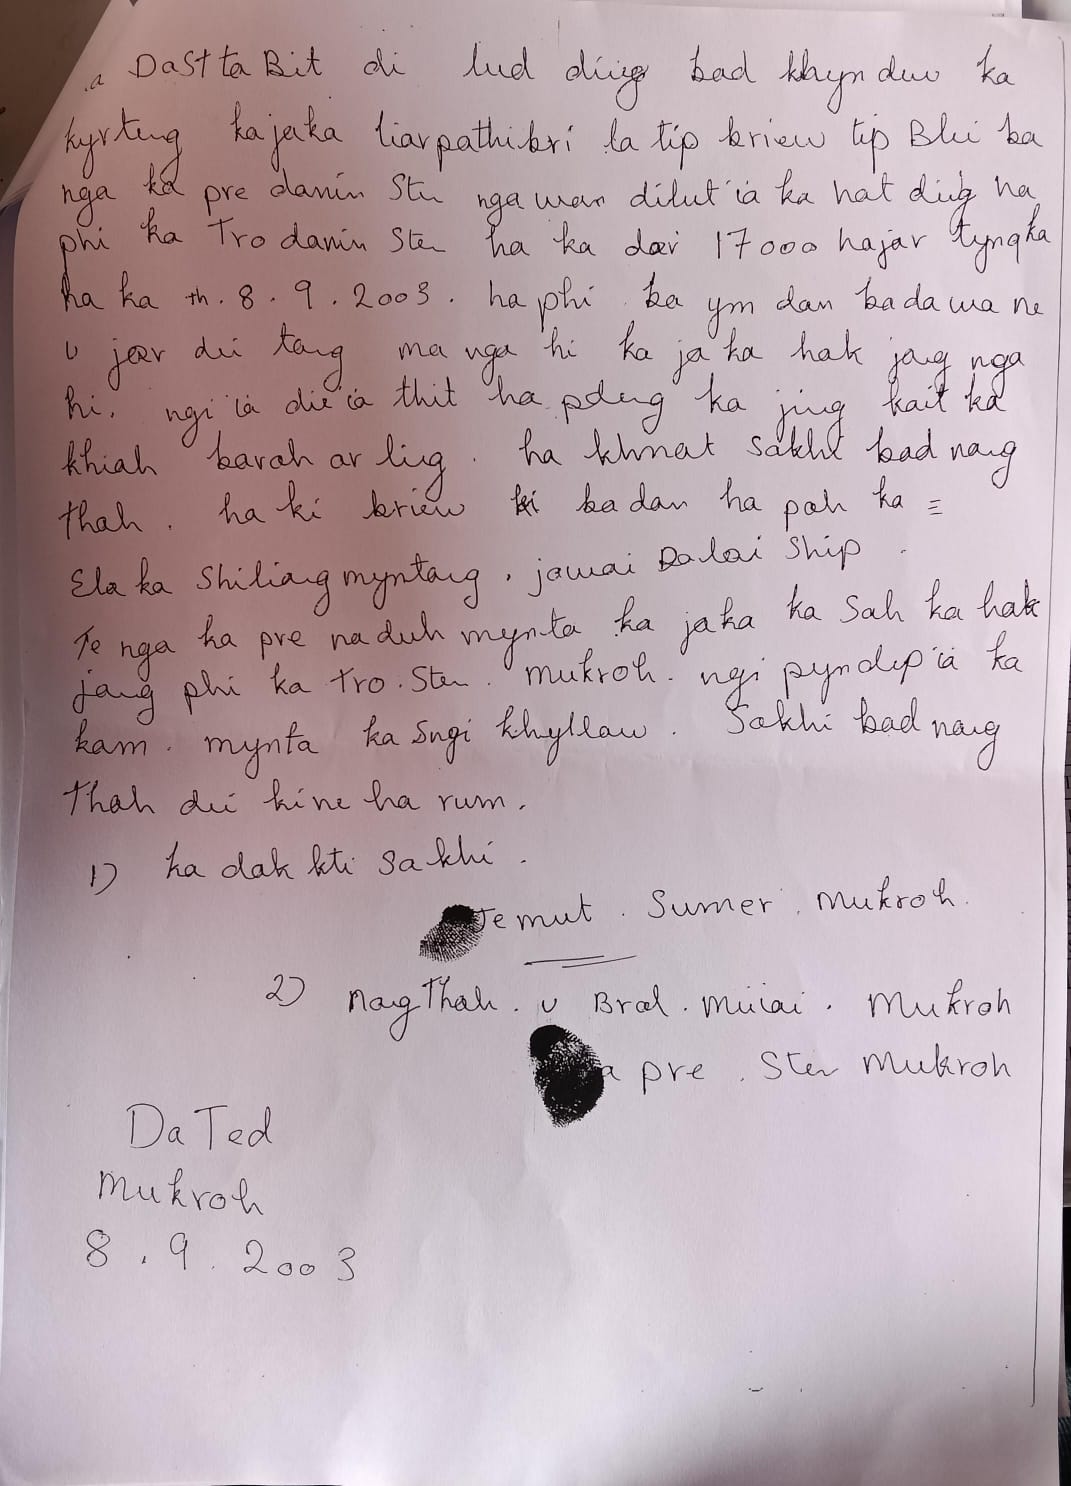 .a DaSttaBit di lud diing bad khyndew ka
kyrteng kajaka liarpathibri la tip briew tip Blei ba
nga ka pre danin Sten nga wan dilut ia ka hat diig ha
phi ka Tro danin Sten ha ka dær 17000 hajar tyngka
ha ka th. 8. 9. 2003. ha phi ba ym dan bada wa ne
u jær dei tang ma nga hi ka ja ka hak jang nga
hi. ngi ia die ia thit ha pdeng ka jing kait ka
khiah barah ar ling. ha khmat Sakhi bad nang
thah. ha ki briew ki ba dan ha pah ka =
Ela ka Shiliang myntang, jawai Daloi Ship.
Te nga ka pre naduh mynta ka jaka ka Sah ka hak
jang phi ka Tro. Sten. mukroh. ngi pyndep ia ka
kam. mynta ka Sngi khyllaw. Sakhi bad nang
Thah dei kine ha rum.
1) ka dak kti sakhi.
Jemut. Sumer. mukroh.
2) nang Thah. u Bral. muiai. mukroh
a pre. Sten mukroh
DaTed
mukroh
8. 9. 2003